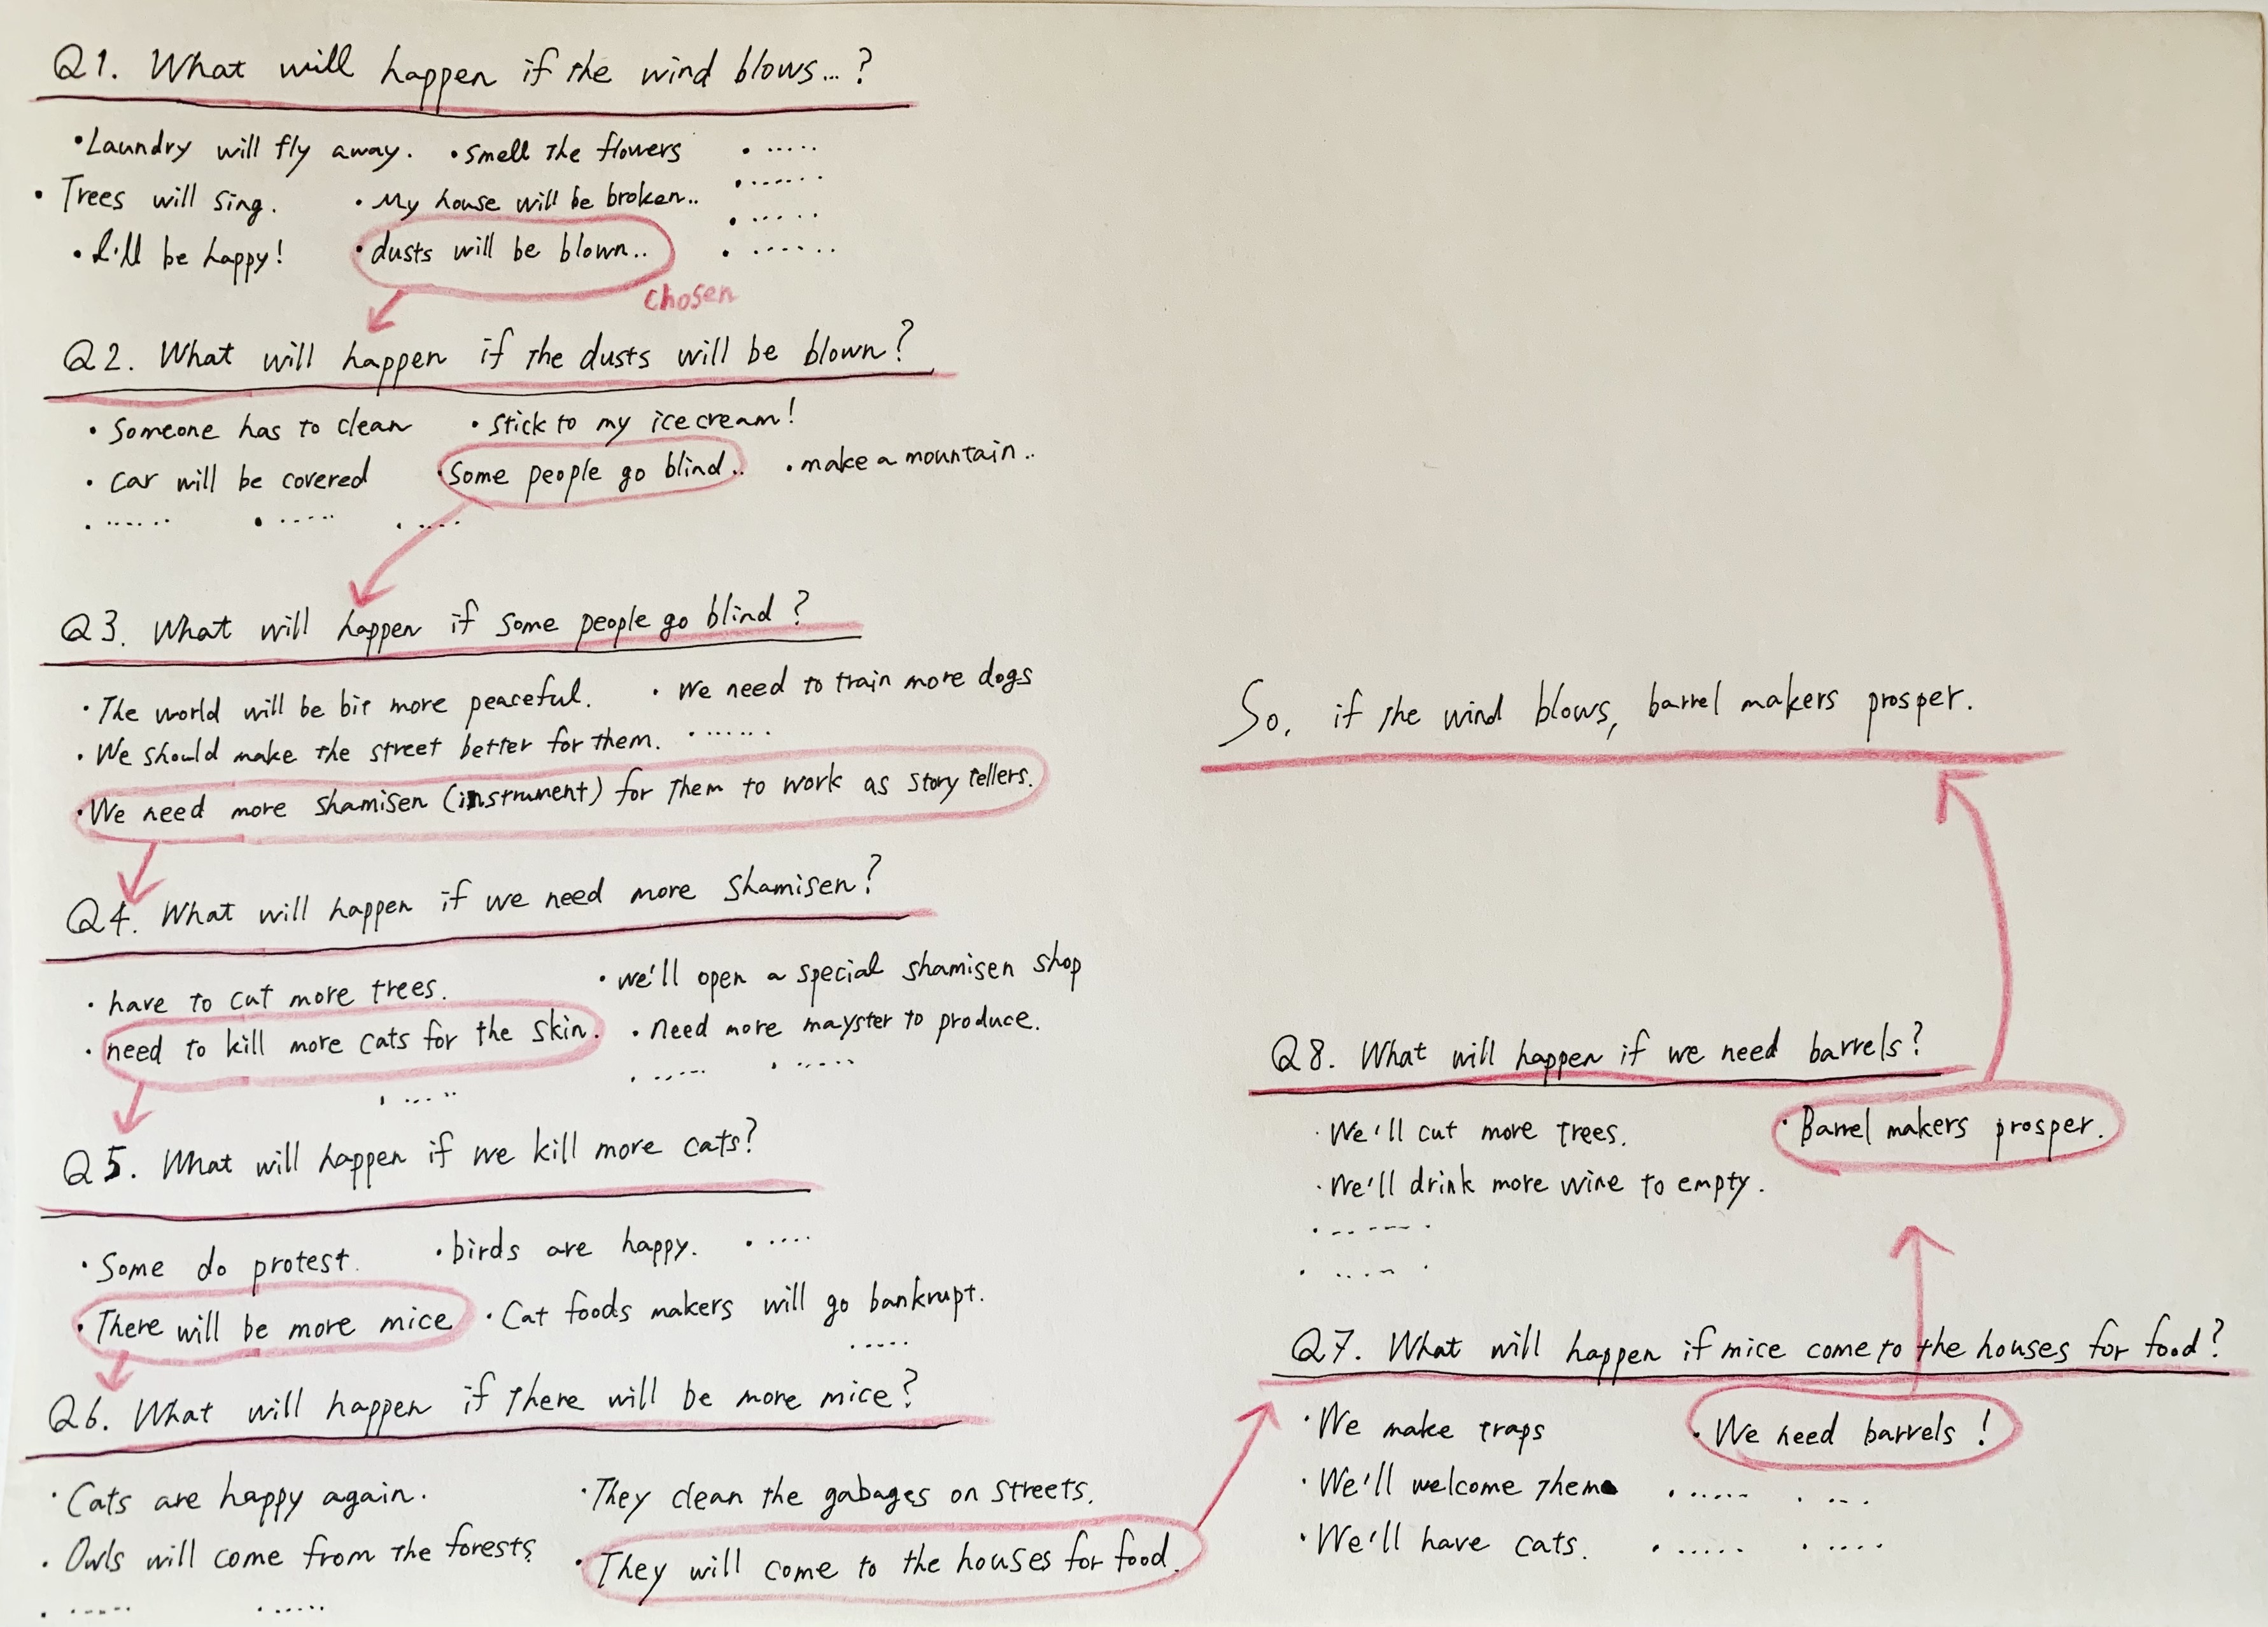 Q1. What will happen if the wind blows...?
・Laundry will fly away. ・smell the flowers ・.....
・Trees will sing. ・My house will be broken.. ・......
・I'll be happy! ・dusts will be blown.. ・.....
・......
chosen
Q2. What will happen if the dusts will be blown?
・Someone has to clean ・stick to my ice cream!
・car will be covered ・Some people go blind.. ・make a mountain..
・...... ・..... ・....
Q3. What will happen if some people go blind?
・The world will be bit more peaceful. ・We need to train more dogs
・We should make the street better for them. ・......
・We need more shamisen (instrument) for them to work as story tellers.
Q4. What will happen if we need more shamisen?
・have to cut more trees. ・we'll open a special shamisen shop
・need to kill more cats for the skin. ・need more mayster to produce.
・.... ・..... ・.....
Q5. What will happen if we kill more cats?
・Some do protest. ・birds are happy. ・....
・There will be more mice ・Cat foods makers will go bankrupt.
.....
Q6. What will happen if there will be more mice?
・Cats are happy again. ・They clean the gabages on streets.
・Owls will come from the forests ・They will come to the houses for food.
・..... ・.....
Q7. What will happen if mice come to the houses for food?
・We make traps ・We need barrels!
・We'll welcome them ・..... ・...
・We'll have cats. ・..... ・....
Q8. What will happen if we need barrels?
・We'll cut more trees. ・Barrel makers prosper.
・We'll drink more wine to empty.
・.....
・.....
So, if the wind blows, barrel makers prosper.